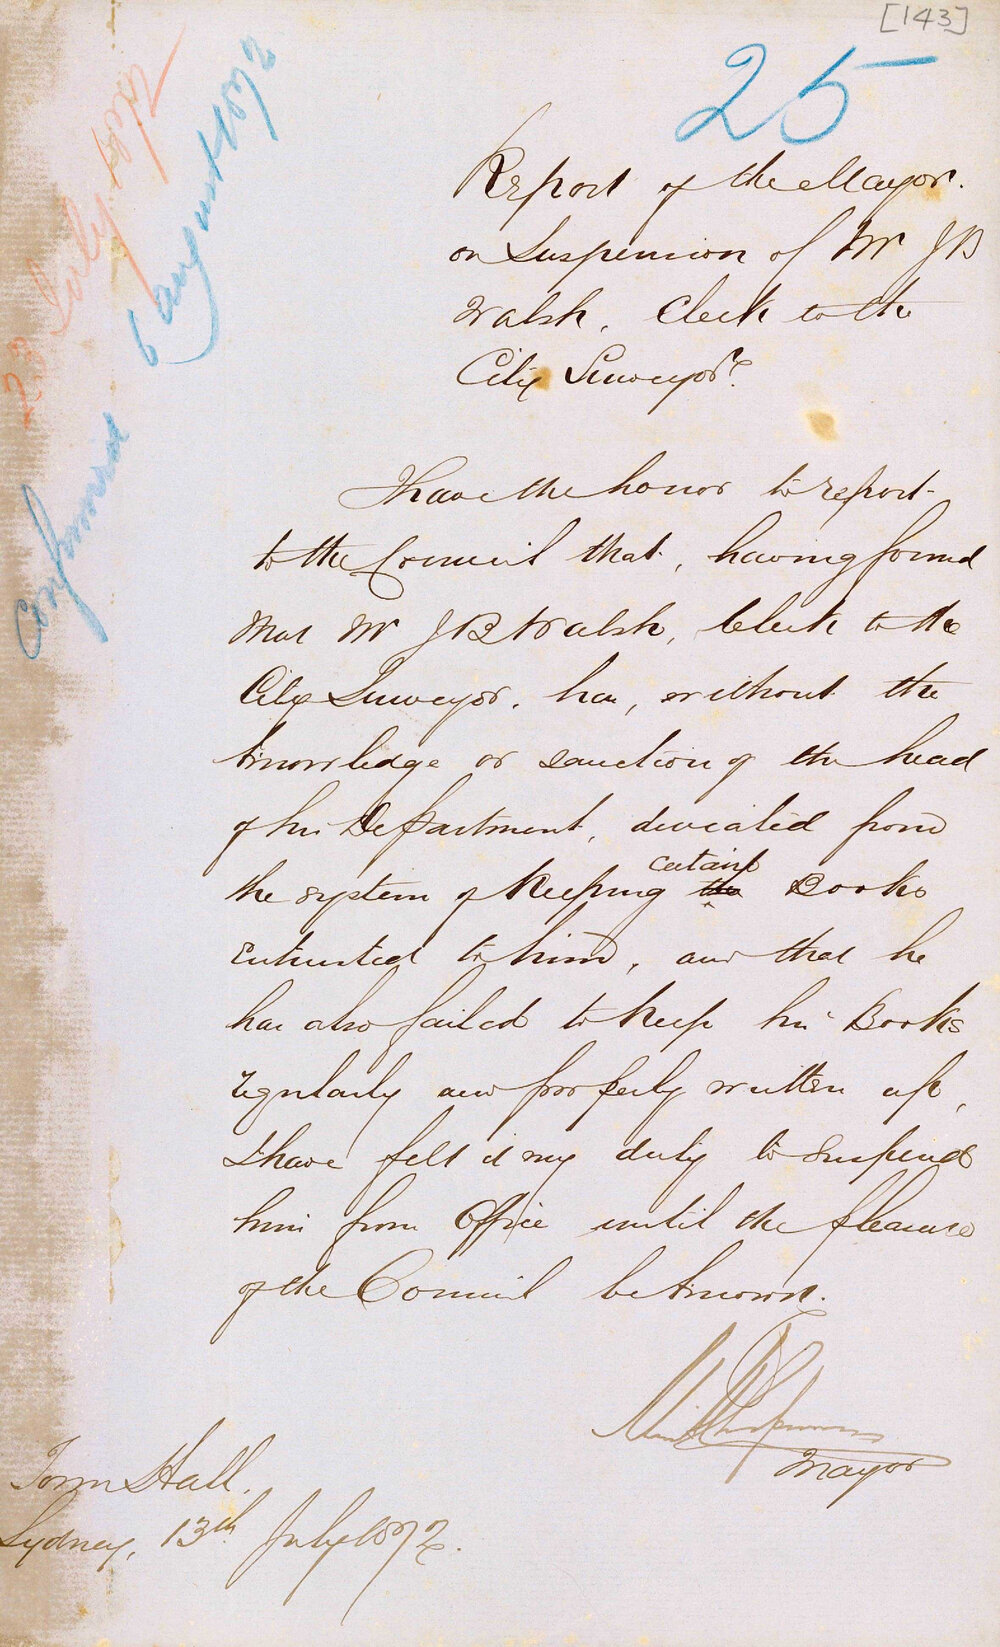 [143]
25
July 1872
6 August 1872
Confirmed
Report of the Mayor.
on Suspension of Mr J B
Walsh, Clerk to the
City Surveyor.
I have the honor to report
to the Council that, having found
that Mr J B Walsh, Clerk to the
City Surveyor, has, without the
knowledge or sanction of the head
of his Department, deviated from
the system of keeping the certain Books
entrusted to him, and that he
has also failed to keep his Books
regularly and properly written up,
I have felt it my duty to suspend
him from Office until the pleasure
of the Council be known.
Mayor
Town Hall,
Sydney, 13th July 1872.